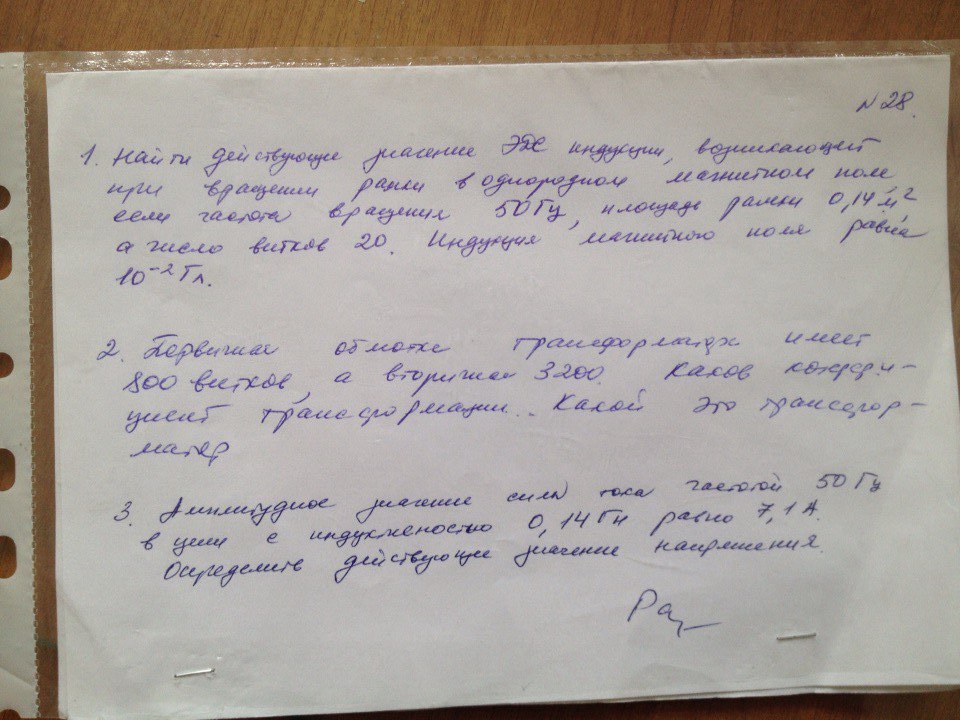 № 28.
1. Найти действующие значение ЭДС индукции, возникающей
при вращении рамки в однородном магнитном поле
если частота вращения 50 Гц, площадь рамки 0,14 м²
а число витков 20. Индукция магнитного поля равна
10⁻² Тл.
2. Первичная обмотка трансформатора имеет
800 витков, а вторичная 3200. Каков коэффи-
циент трансформации. Какой это трансфор-
матор
3. Амплитудное значение силы тока частотой 50 Гц
в цепи с индуктивностью 0,14 Гн равно 7,1 А.
Определить действующее значение напряжения.